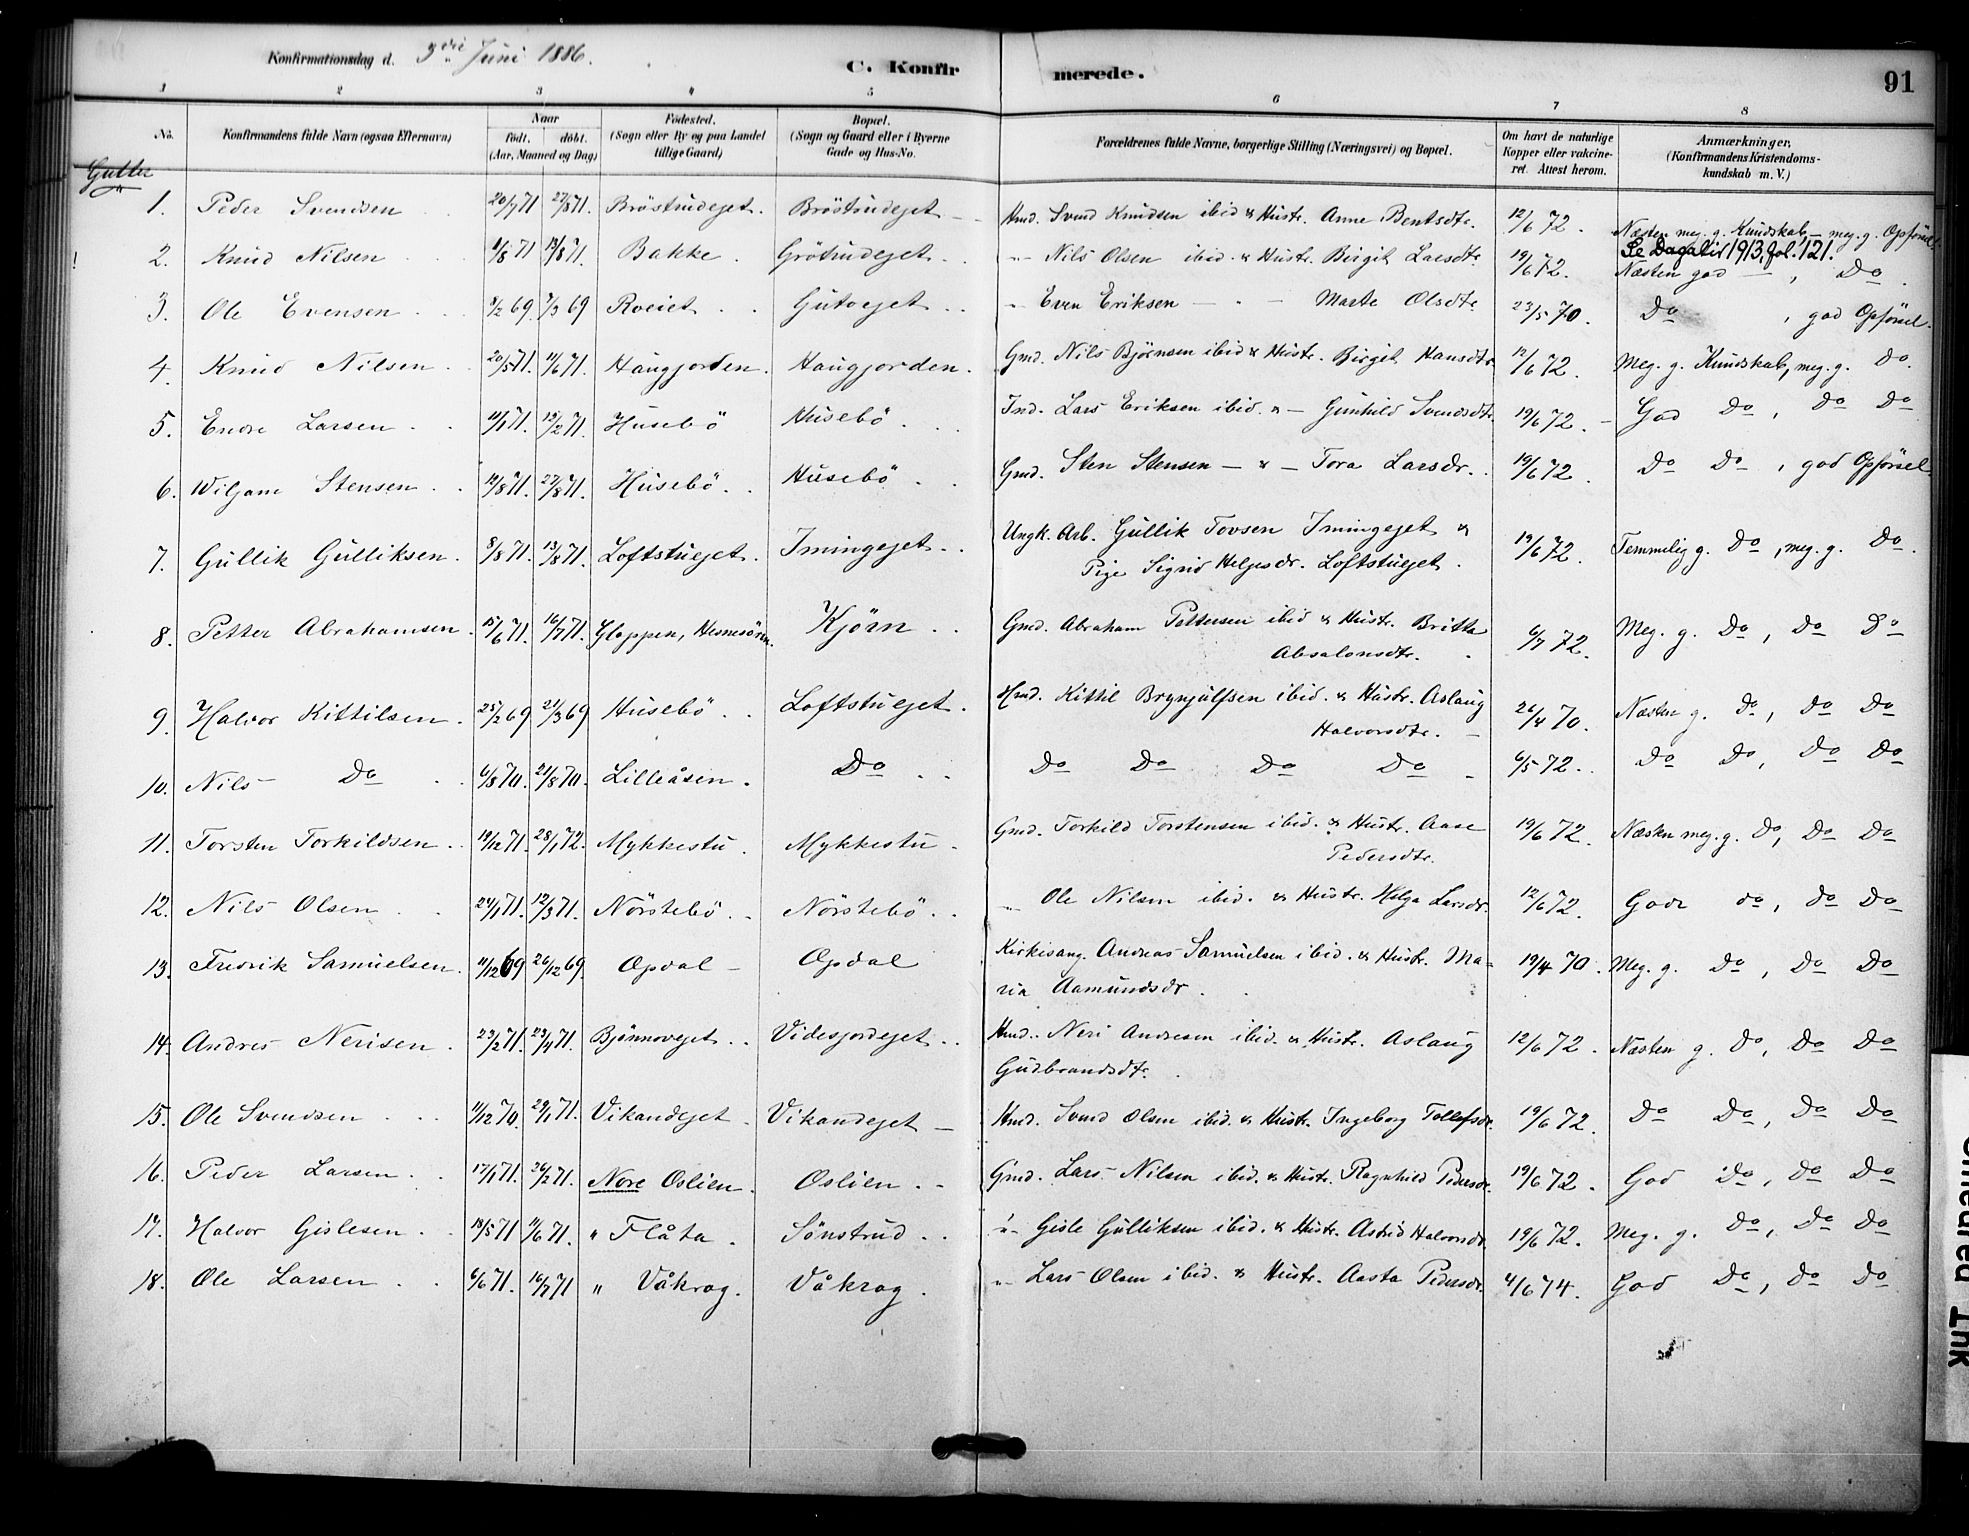 Konfirmationsdag d. 3die Juni 1886.
C. Konfirmerede.
91
1 2 3 4 5 6 7 8
No.
Konfirmandens fulde Navn (ogsaa Efternavn)
Naar
født. døbt.
(Aar, Maaned og Dag)
Fødested.
(Sogn eller By og paa Landet
tillige Gaard)
Bopæl.
(Sogn og Gaard eller i Byerne
Gade og Hus-No.
Forældrenes fulde Navne, borgerlige Stilling (Næringsvei) og Bopæl.
Om havt de naturlige
Kopper eller vakcine-
ret. Attest herom.
Anmærkninger,
(Konfirmandens Kristendoms-
kundskab m. V.)
Gutter
1. Peder Svendsen 20/7 71 27/8 71. Bröstrudejet. Bröstrudejet - Hmd. Svend Knudsen ibid & Hustr. Anne Bentsdtr. 12/6 72. Næsten meg. g. Kundskab, - meg. g. Opförsel
Se Dagalist 1913, fol. 121.
! 2. Knud Nilsen 1/8 71 13/8 71. Bakke. Grötrudejet. "- Nils Olsen ibid. & Hustr. Birgit Larsdtr. 19/6 72. Næsten god - , Do.
3. Ole Evensen 3/2 69. 7/3 69 Roeiet. Gutvejet. " Even Eriksen - " - Marte Olsdtr. 23/5 70. Do , god Opförsel.
4. Knud Nilsen 20/5 71. 11/6 71. Haugjorden. Haugjorden. Gmd. Nils Bjørnsen ibid & Hustr. Birgit Hansdtr. 12/6 72. Meg. g. Kundskab, meg. g. Do.
5. Endre Larsen 11/1 71. 19/2 71. Husebö Husebö. Ind. Lars Eriksen ibid. & - Gunhild Svendsdtr. 19/6 72. - God Do, Do Do
6. Wiljam Stensen 14/8 71. 27/8 71. Husebö. Husebö. Gmd. Sten Stensen - & - Tora Larsdr. 19/6 72. Do Do, god Opförsel.
7. Gullik Gulliksen. 8/8 71. 13/8 71. Loftstuejet. Imingejet. Ungk. Arb. Gullik Tovsen Imingejet &
Pige Sigrid Helgesdr. Loftstuejet. 19/6 72. Temmelig g. Do, meg. g. Do.
8. Petter Abrahamsen. 15/6 71. 16/7 71. Gloppen, Kjörn. Gmd. Abraham Pettersen ibid & Hustr. Britta
Absalonsdtr. 6/7 72. Meg. g. Do, Do Do
9. Halvor Kittilsen. 25/2 69 21/3 69 Husebö. Loftstuejet. Hmd. Kittil Brynjulfsen ibid. & Hustr. Aslaug
Halvorsdtr. - 26/4 70. Næsten g. Do, Do Do
10. Nils Do. 6/8 70. 21/8 70. Lilleåsen. Do. Do Do Do Do - 6/5 72. Do Do, Do Do
11. Torsten Torkildsen. 19/12 71. 28/1 72. Mykkestu. Mykkestu. Gmd. Torkild Torstensen ibid. & Hustr. Aase
Pedersdtr. 19/6 72. Næsten meg. g. Do, Do Do
12. Nils Olsen 24/1 71. 12/3 71. Nörstebö. Nörstebö. "- Ole Nilsen ibid. & Hustr. Helga Larsdr. 12/6 72. Godt do, Do Do
13. Fredrik Samuelsen. 11/12 69 26/12 69 Opdal - Opdal Kirkesang. Andreas Samuelsen ibid. & Hustr. Ma-
ria Aamundsdr. 19/4 70. Meg. g. Do, Do Do
14. Andres Nerisen. 23/2 71. 23/4 71. Bjönnovejet. Videsjordejet. Hmd. Neri Andresen ibid. & Hustr. Aslaug
Gudbrandsdtr. 12/6 72. Næsten g. Do, Do Do
15. Ole Svendsen 11/12 70. 29/1 71. Vikandejet. Vikandejet - Hmd. Svend Olsen ibid. & Hustr. Ingeborg Tollefsdr. 19/6 72. Do Do, Do Do
16. Peder Larsen. 17/1 71. 26/2 71. Nore Oslien. Oslien. Gmd. Lars Nilsen ibid. & Hustr. Ragnhild Pedersdr. 19/6 72. God Do, Do Do
17. Halvor Gislesen. 19/5 71 11/6 71. " Flåta. Sönstrud. "- Gisle Gulliksen ibid. & Hustr. Astrid Halvorsdr. 19/6 72. Meg. g. Do, Do Do
18. Ole Larsen 6/6 71. 16/7 71 " Våkrag. Våkrag. "- Lars Olsen ibid. & Hustr. Aasta Pedersdr. 4/6 74. God Do, Do Do